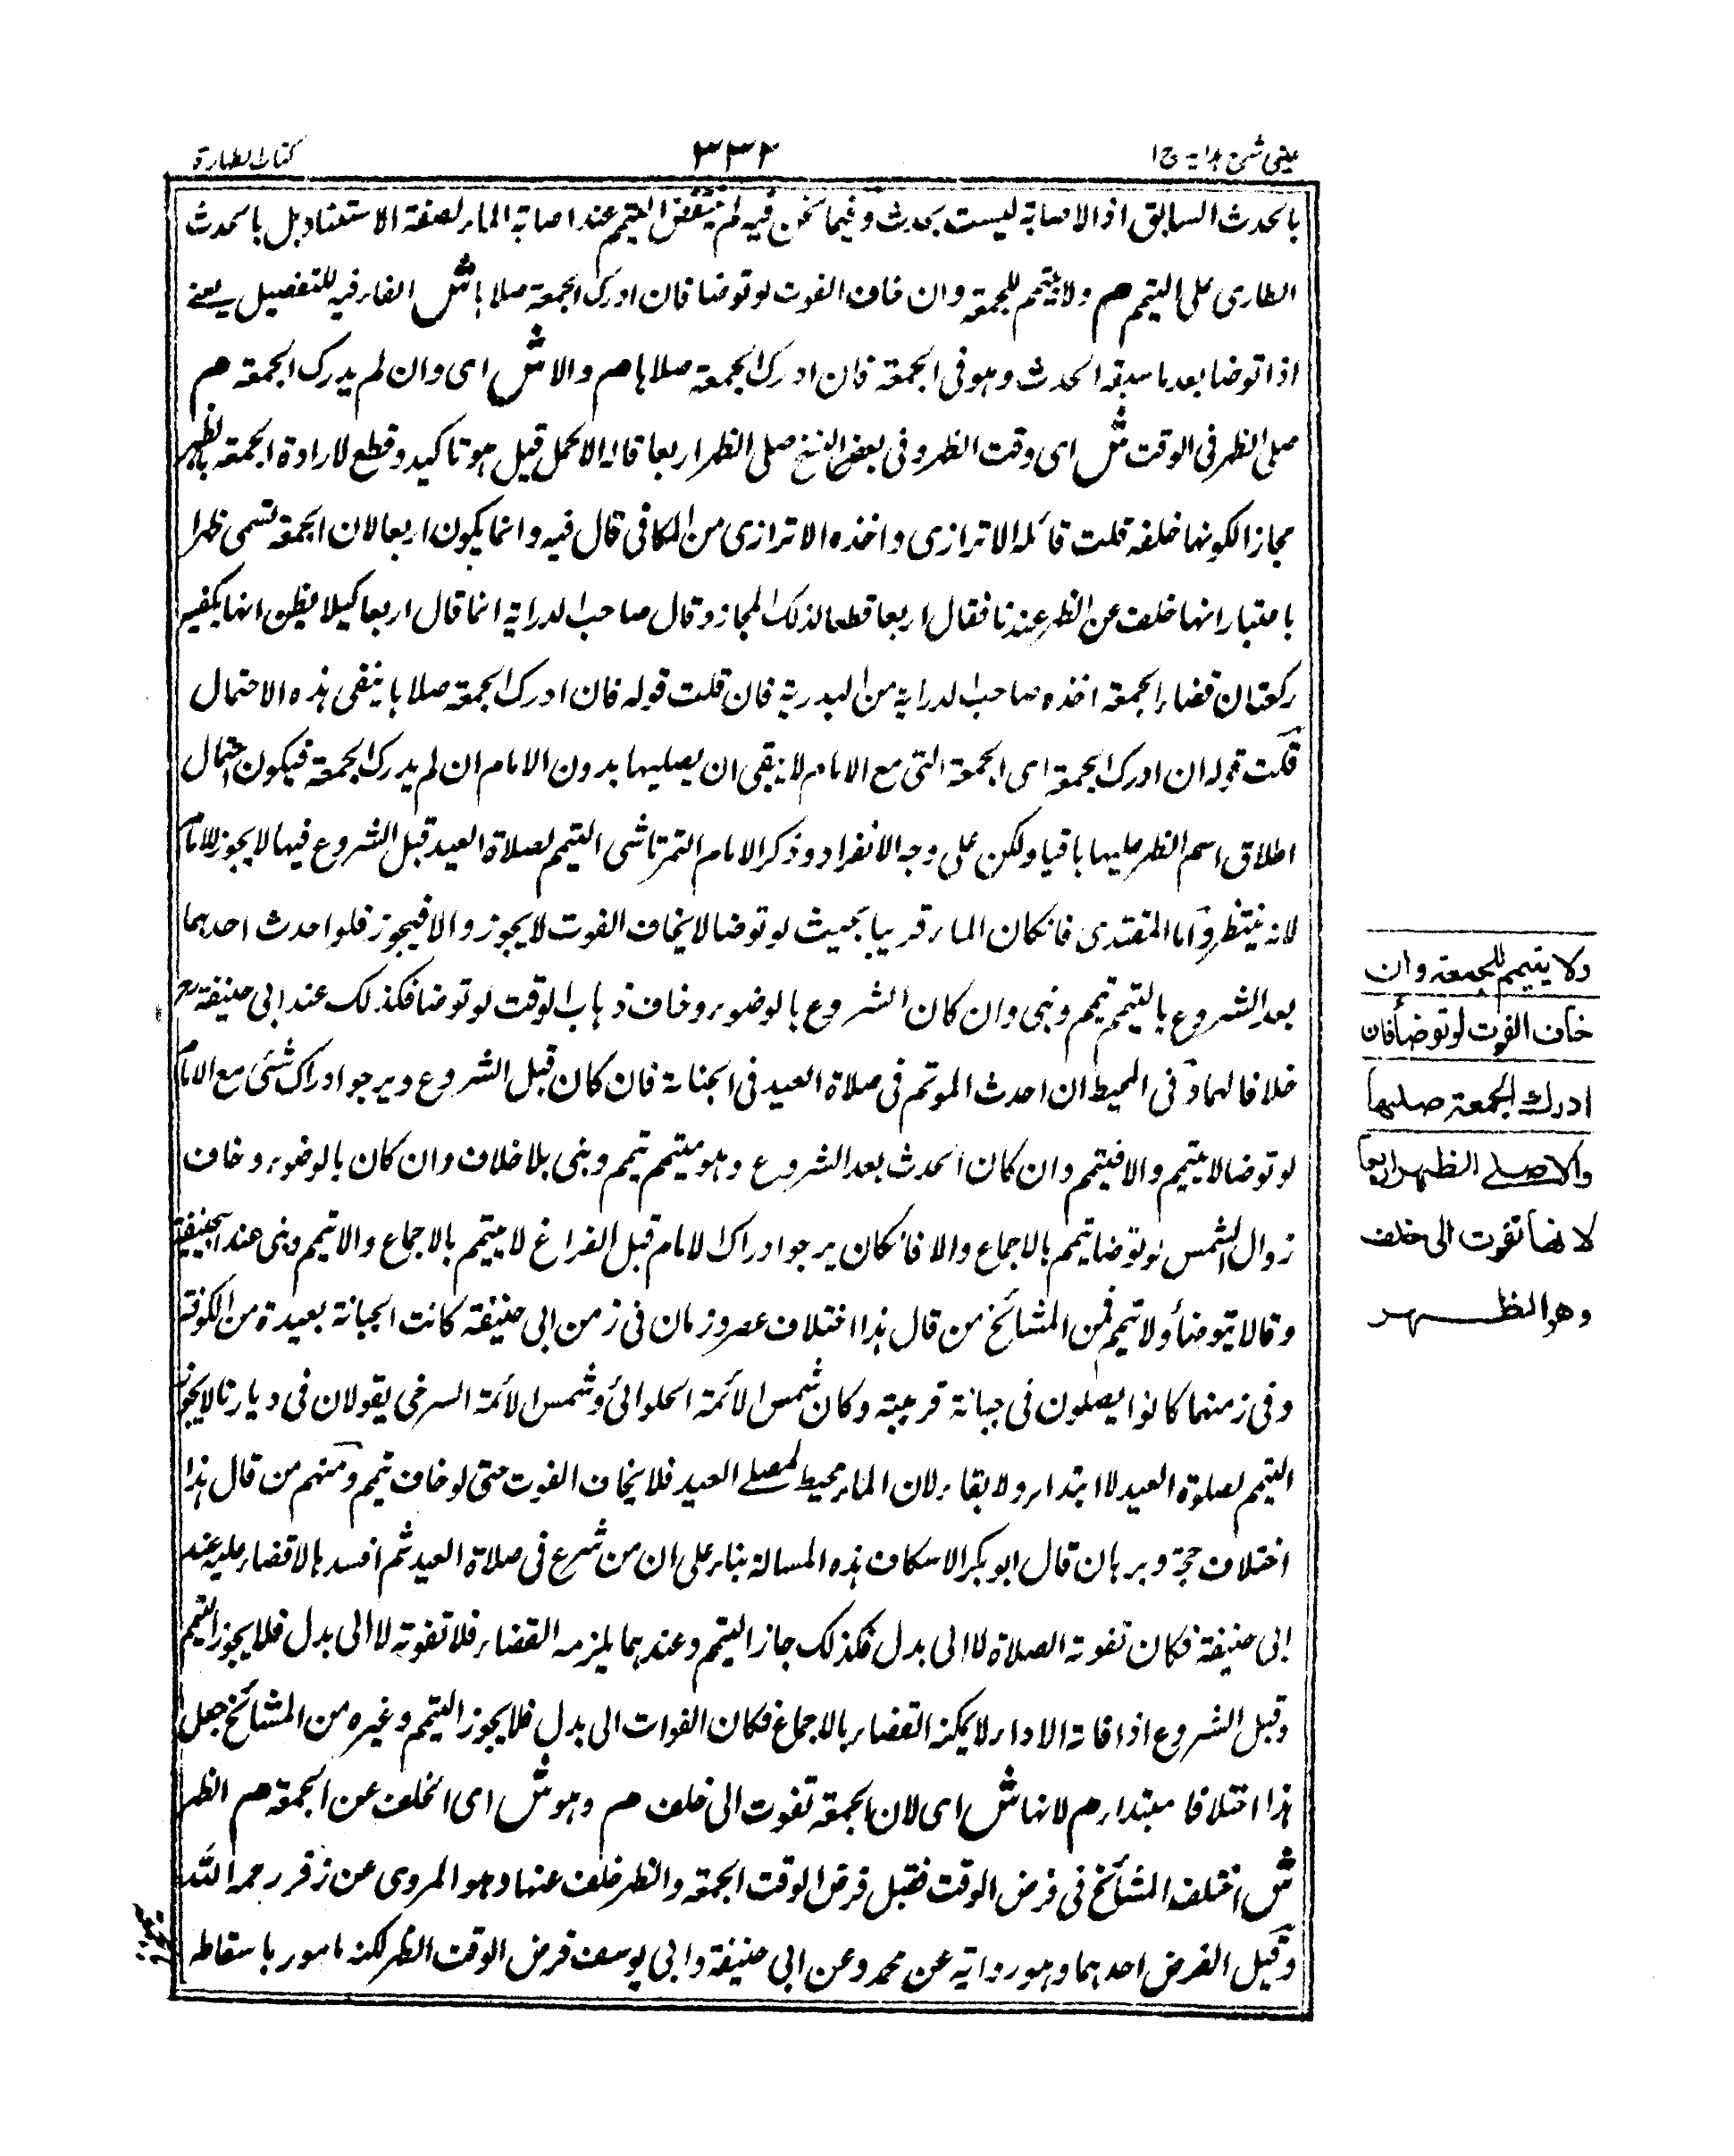 عینی شرح ہدایہ ج ۱
۳۳۲
کتاب الطہارۃ
بالحدث السابق اذ الاصابة ليست بحدث وفيما نحن فيه لم ينتقض التيمم عند اصابة الماء لصفة الاستناد بل بالحدث
الطارى على التيمم م ولا يتيمم للجمعة وان خاف الفوت لو توضا فان ادرك الجمعة صلاها ش الفاء فيه للتفصيل يعنى
اذا توضا بعد ما سبقه الحدث وهو فى الجمعة فان ادرك الجمعة صلاها م والا ش اى وان لم يدرك الجمعة م
صلى الظهر فى الوقت ش اى وقت الظهر وفى بعض النسخ صلى الظهر اربعا قاله الاكمل قيل هو تاكيد وقطع لارادة الجمعة بالظهر
مجازا لكونها خلفه قلت قائله الاترازى واخذه الاترازى من الكافى قال فيه وانما يكون اربعا لان الجمعة تسمى ظهرا
باعتبار انها خلف عن الظهر عندنا فقال اربعا قطعا لذلك المجاز وقال صاحب الدراية انما قال اربعا كيلا يظن انها يكفيه
ركعتان قضاء الجمعة اخذه صاحب الدراية من البدرية فان قلت قوله فان ادرك الجمعة صلاها ينفى هذه الاحتمال
قلت قوله ان ادرك الجمعة اى الجمعة التى مع الامام لا يبقى ان يصليها بدون الامام ان لم يدرك الجمعة فيكون احتمال
اطلاق اسم الظهر عليها باقيا ولكن على وجه الانفراد وذكر الامام التمرتاشى التيمم لصلاة العيد قبل الشروع فيها لا يجوز للامام
لانه ينتظر واما المقتدى فان كان الماء قريبا بحيث لو توضا لا يخاف الفوت لا يجوز والا فيجوز فلو احدث احدهما
بعد الشروع بالتيمم تيمم وبنى وان كان الشروع بالوضوء وخاف ذهاب الوقت لو توضا فكذلك عند ابى حنيفة رح
خلافا لهما وفى المحيط ان احدث الموتم فى صلاة العيد فى الجبانة فان كان قبل الشروع ويرجو ادراك شئ مع الامام
لو توضا لا يتيمم والا فيتيمم وان كان الحدث بعد الشروع وهو متيمم تيمم وبنى بلا خلاف وان كان بالوضوء وخاف
زوال الشمس لو توضا تيمم بالاجماع والا فان كان يرجو ادراك الامام قبل الفراغ لا يتيمم بالاجماع والا تيمم وبنى عند ابى حنيفة
وقالا يتوضأ ولا تيمم فمن المشائخ من قال هذا اختلاف عصر وزمان فى زمن ابى حنيفة كانت الجبانة بعيدة من الكوفة
وفى زمنهما كانوا يصلون فى جبانة قريبة وكان شمس الائمة الحلوائى وشمس الائمة السرخى يقولان فى ديارنا لا يجوز
التيمم لصلوة العيد لا ابتداء ولا بقاء لان الماء محيط لمصلے العيد فلا يخاف الفوت حتى لو خاف تيمم ومنهم من قال هذا
اختلاف حجة وبرهان قال ابو بكر الاسكاف هذه المسالة بناء على ان من شرع فى صلاة العيد ثم افسدها لا قضاء عليه عند
ابى حنيفة فكان تفوته الصلاة لا الى بدل فكذلك جاز التيمم وعندهما يلزمه القضاء فلا تفوته لا الى بدل فلا يجوز التيمم
وقبل الشروع اذا فاته الاداء لا يمكنه القضاء بالاجماع فكان الفوات الى بدل فلا يجوز التيمم وغيره من المشائخ جعل
هذا اختلافا مبتداء م لانها ش اى لان الجمعة تفوت الى خلف م وهو ش اى الخلف عن الجمعة م الظهر
ش اختلف المشائخ فى فرض الوقت فقيل فرض الوقت الجمعة والظهر خلف عنها وهو المروى عن زفر رحمه الله
وقيل الفرض احدهما وهو رواية عن محمد وعن ابى حنيفة وابى يوسف فرض الوقت الظهر لكنه مامور باسقاطه
ولا يتيمم للجمعة وان
خاف الفوت لو توضأ فان
ادرك الجمعة صلیها
والا صلے الظهر اربعا
لانها تفوت الى خلف
وهو الظهر